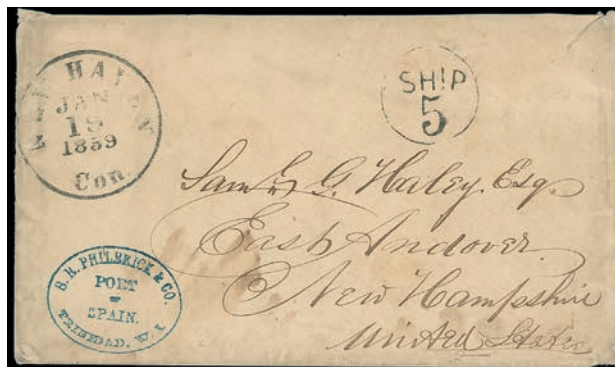 NEW HAVEN
JAN
19
1859
Con.
SHIP
5
Saml G. Haley. Esq.
East Andover.
New Hampshire
United States
S. H. PHILBRICK & CO.
PORT
OF
SPAIN.
TRINIDAD, W. I.